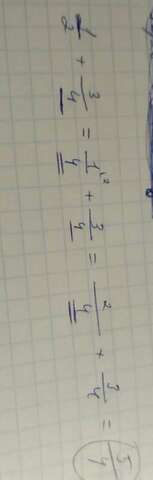 1/2 + 3/4 = 1·2/4 + 3/4 = 2/4 + 3/4 = 5/4